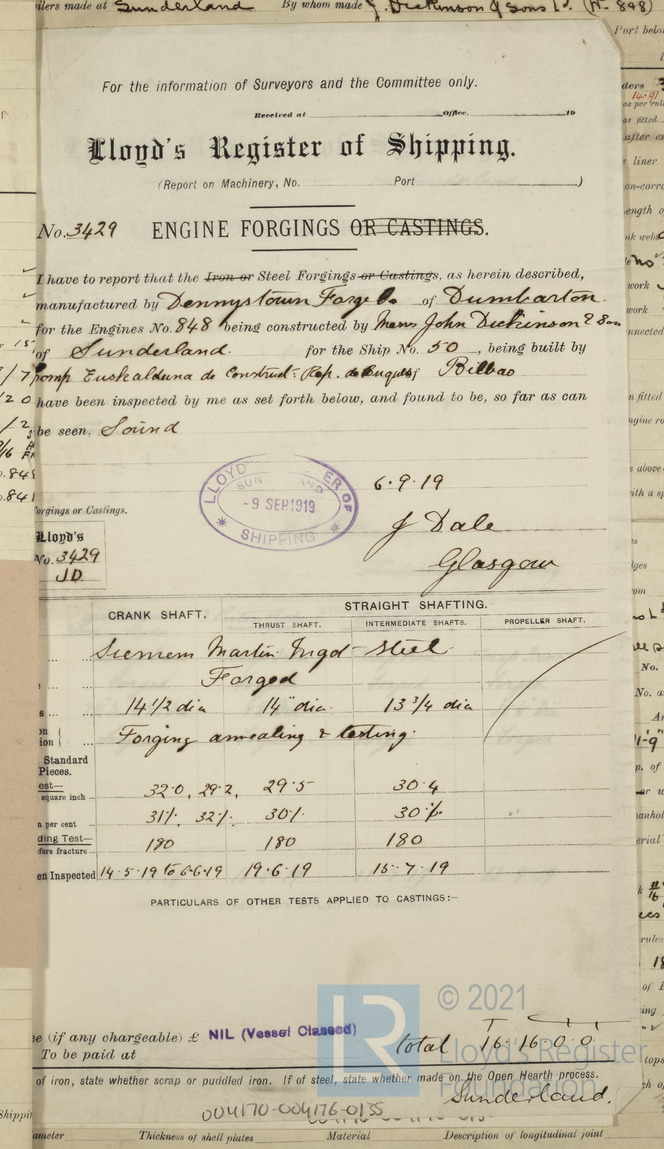 ilers made at Sunderland By whom made J. Dickinson & Sons Ld. (No 848)
Port belo
For the information of Surveyors and the Committee only.
Received at Office, 19
Lloyd's Register of Shipping.
(Report on Machinery, No. Port )
No. 3429 ENGINE FORGINGS OR CASTINGS.
I have to report that the Iron or Steel Forgings or Castings, as herein described,
manufactured by Dennystown Forge Co of Dumbarton.
for the Engines No. 848 being constructed by Messrs John Dickinson & Sons
of Sunderland. for the Ship No. 50, being built by
Comp Euskalduna de Construct. Rep. de Buques Bilbao
have been inspected by me as set forth below, and found to be, so far as can
be seen, Sound
6.9.19
LLOYD' ER OF
SUN AND
-9 SEP 1919
SHIPPING
J Dale
Glasgow
Forgings or Castings.
Lloyd's
No. 3429
JD
CRANK SHAFT. STRAIGHT SHAFTING.
THRUST SHAFT. INTERMEDIATE SHAFTS. PROPELLER SHAFT.
Siemens Martin Ingot Steel
Forged
14 1/2 dia 14" dia. 13 3/4 dia
Forging annealing & testing.
Standard
Pieces.
est—
square inch 32.0, 29.2, 29.5 30.4
per cent 31%, 32%. 30% 30%.
ding Test—
fore fracture 180 180 180
en Inspected 14-5-19 to 6-6-19 19.6.19 15-7-19
PARTICULARS OF OTHER TESTS APPLIED TO CASTINGS:—
© 2021
Lloyd's Register
Foundation
(if any chargeable) £ NIL (Vessel Classed) total 16.16.0.0
To be paid at
of iron, state whether scrap or puddled iron. If of steel, state whether made on the Open Hearth process.
Sunderland.
004170-004176-0135
ameter Thickness of shell plates Material Description of longitudinal joint